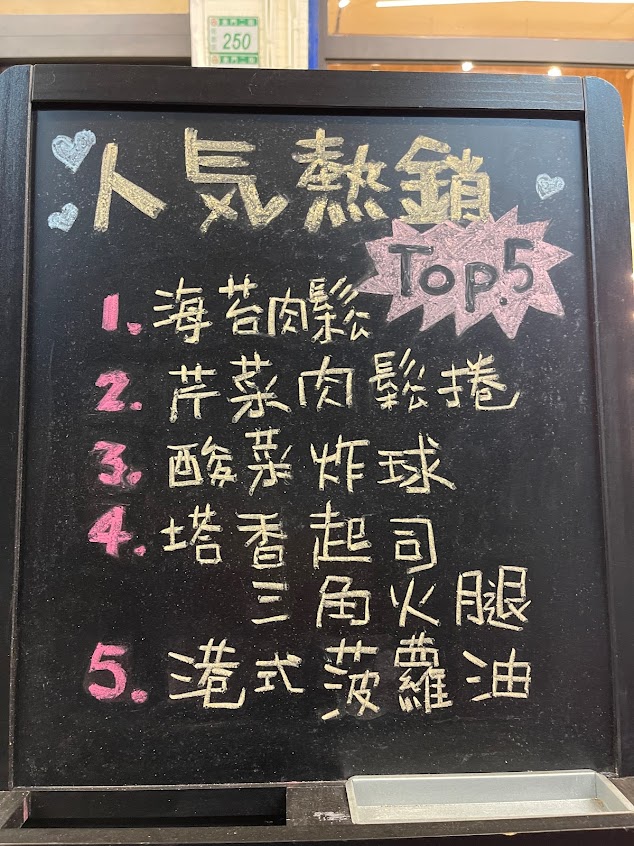 250
人気熱銷
Top.5
1. 海苔肉鬆
2. 芹菜肉鬆捲
3. 酸菜炸球
4. 塔香起司
三角火腿
5. 港式菠蘿油